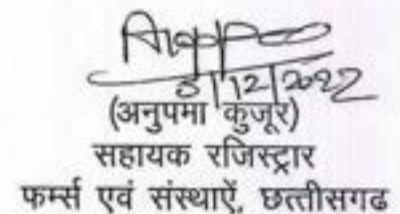 5/12/2022
(अनुपमा कुजूर)
सहायक रजिस्ट्रार
फर्म्स एवं संस्थाऐं, छत्तीसगढ